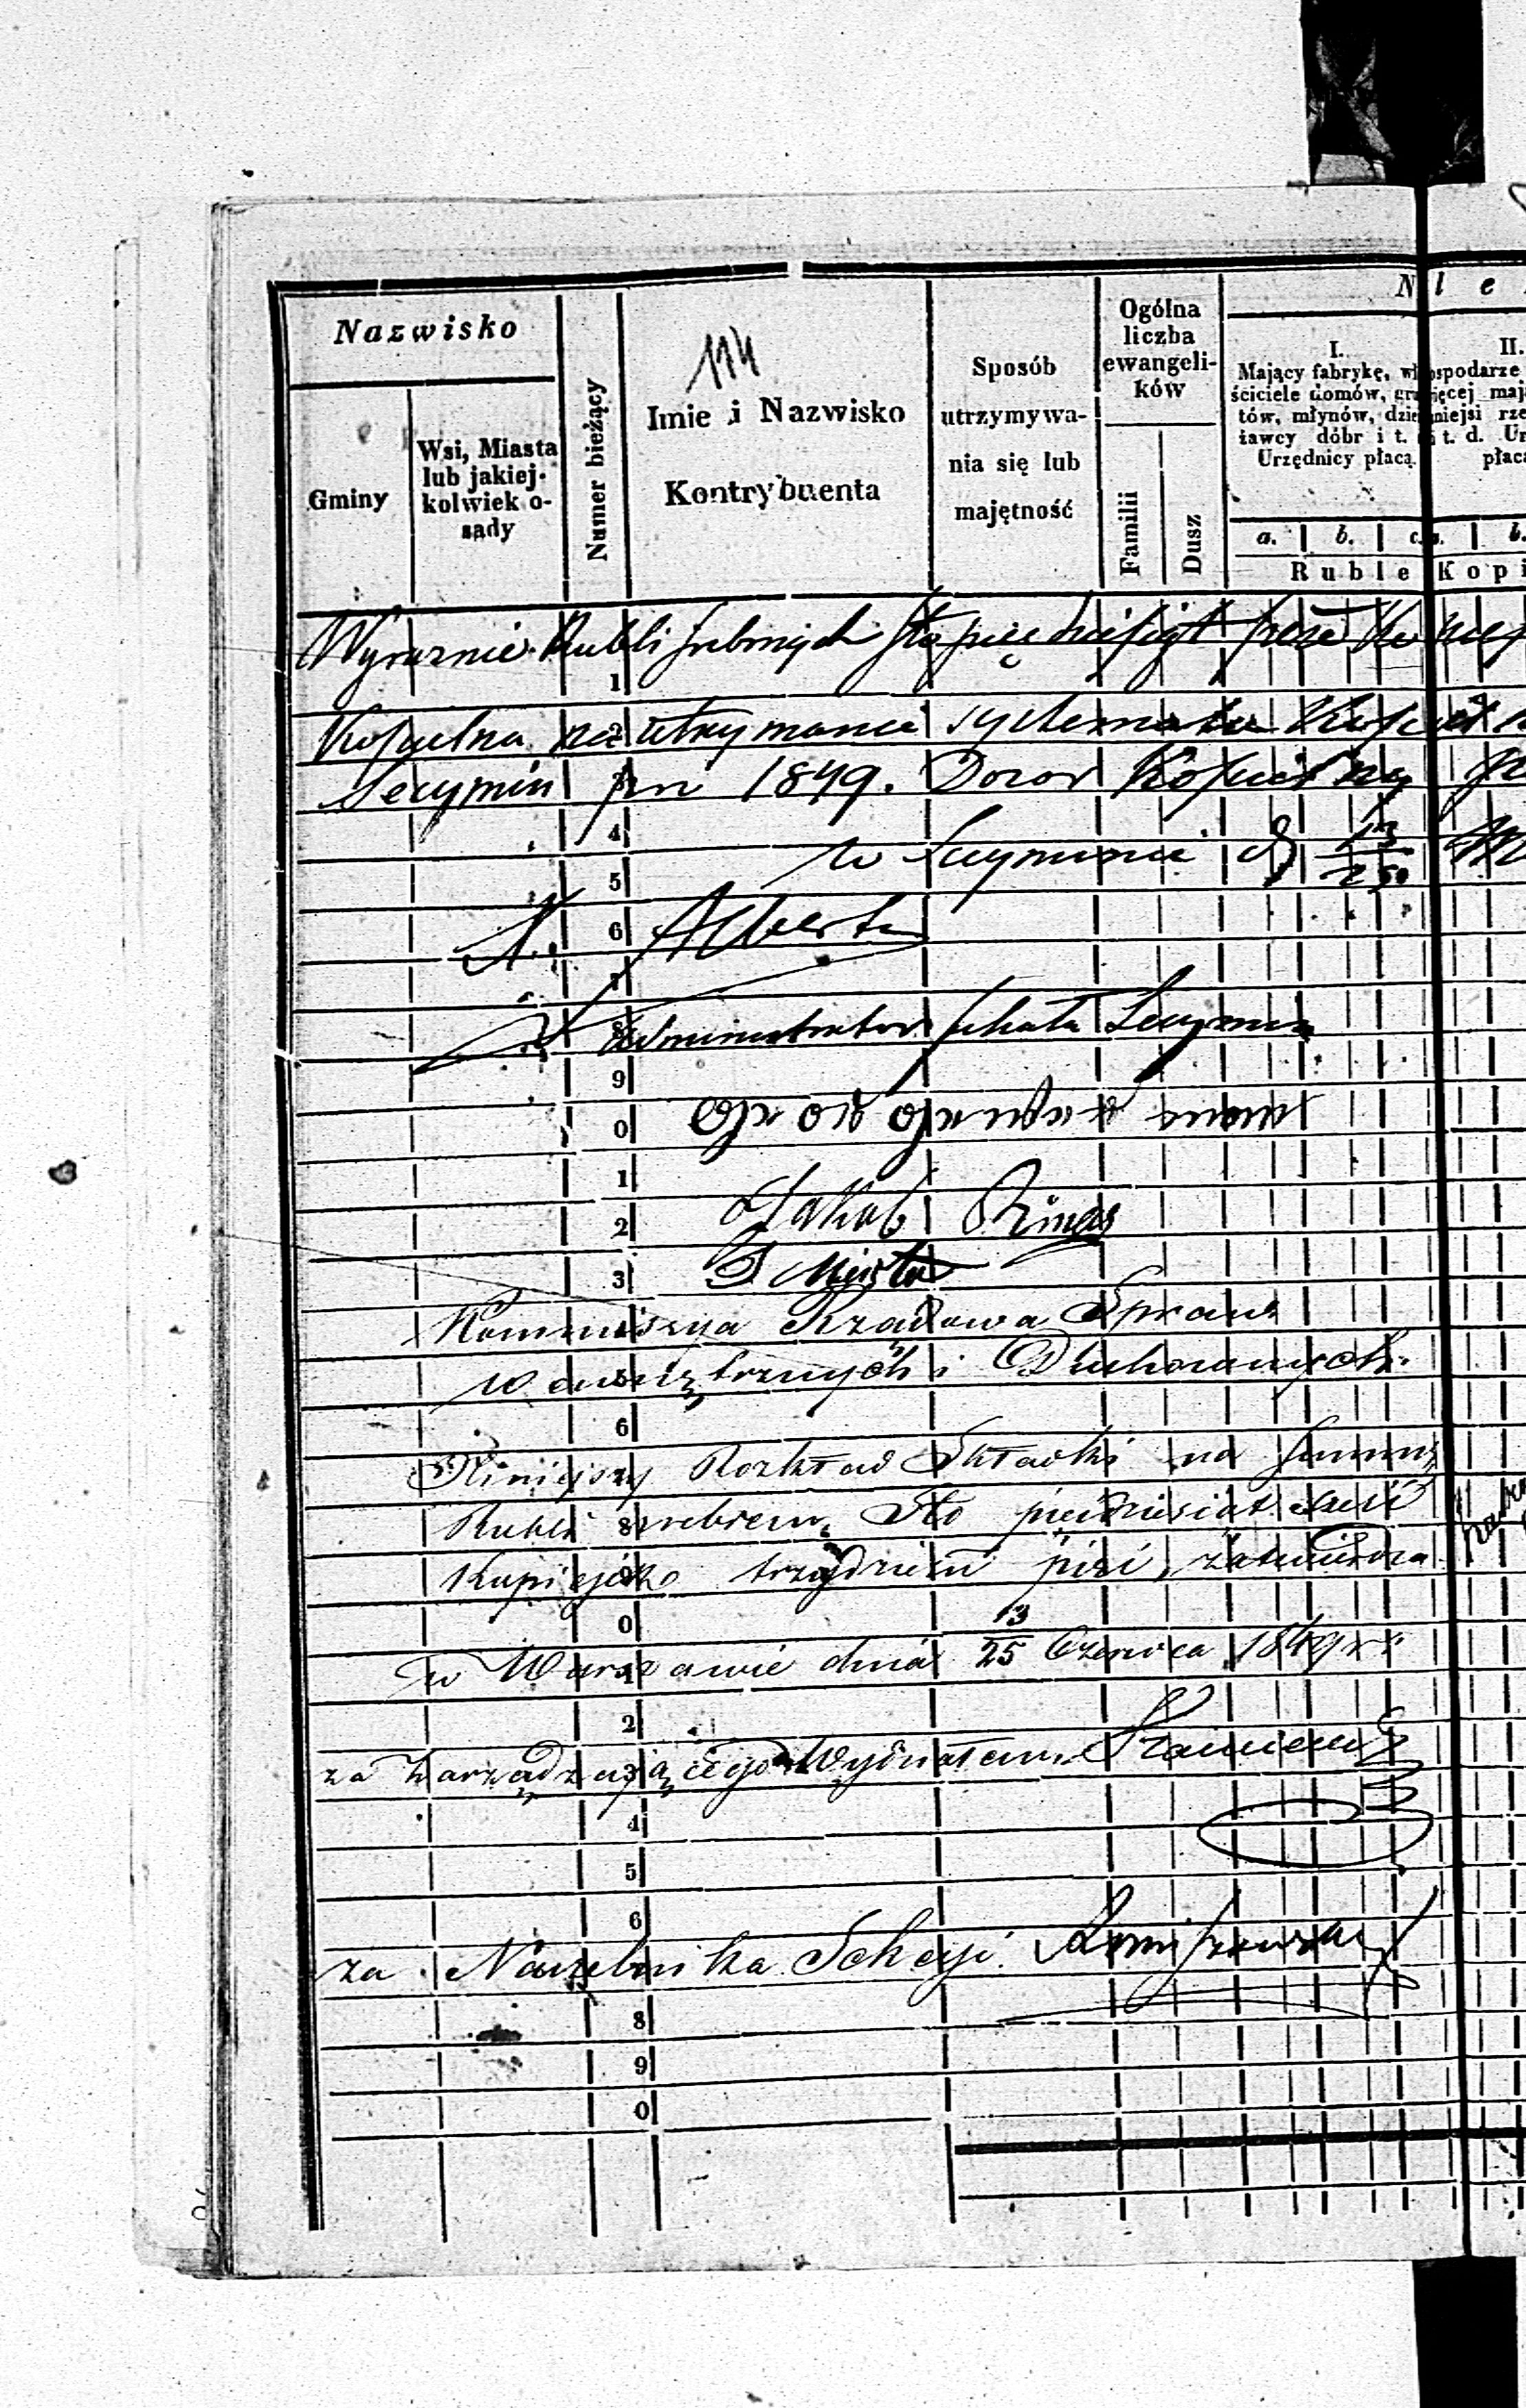 Nazwisko
Gminy
Wsi, Miasta
lub jakiej-
kolwiek o-
sady
Numer bieżący
114
Imie i Nazwisko
Kontrybuenta
Sposób
utrzymywa-
nia się lub
majętność
Ogólna
liczba
ewangeli-
ków
Familii
Dusz
N l e
I.
Mający fabrykę, wł
ściciele domów, gra
tów, młynów, dzie
żawcy dóbr i t.
Urzędnicy płacą
a. b. c.
Ruble
II.
ospodarze
ęcej mają
niejsi rze
t. d. Ur
płac
b.
Kopi
Wyraznie Rubli srebrnych sto pięćdziesiąt sześć
Koscielna na utrzymanie systemata
Secymin pro 1849. Dozor Koscielny
w Secyminie d 13/25 M
A. Alberti
Administrator filiała Secymin
Jakob Rinas
Kommissya Rządowa Spraw
Wewnętrznych i Duchownych
Niniejszy Rozkład Składki na summę
Rubli srebrem Sto pięćdziesiąt sześć
Kopiejek trzydzieści pięć, zatwierdza
w Warszawie dnia 13/25 Czerwca 1849 r:
za Zarządzającego Wydziałem
za Naczelnika Sekcyi
1
4
5
6
9
0
1
2
3
6
8
0
1
2
3
4
5
6
8
9
0